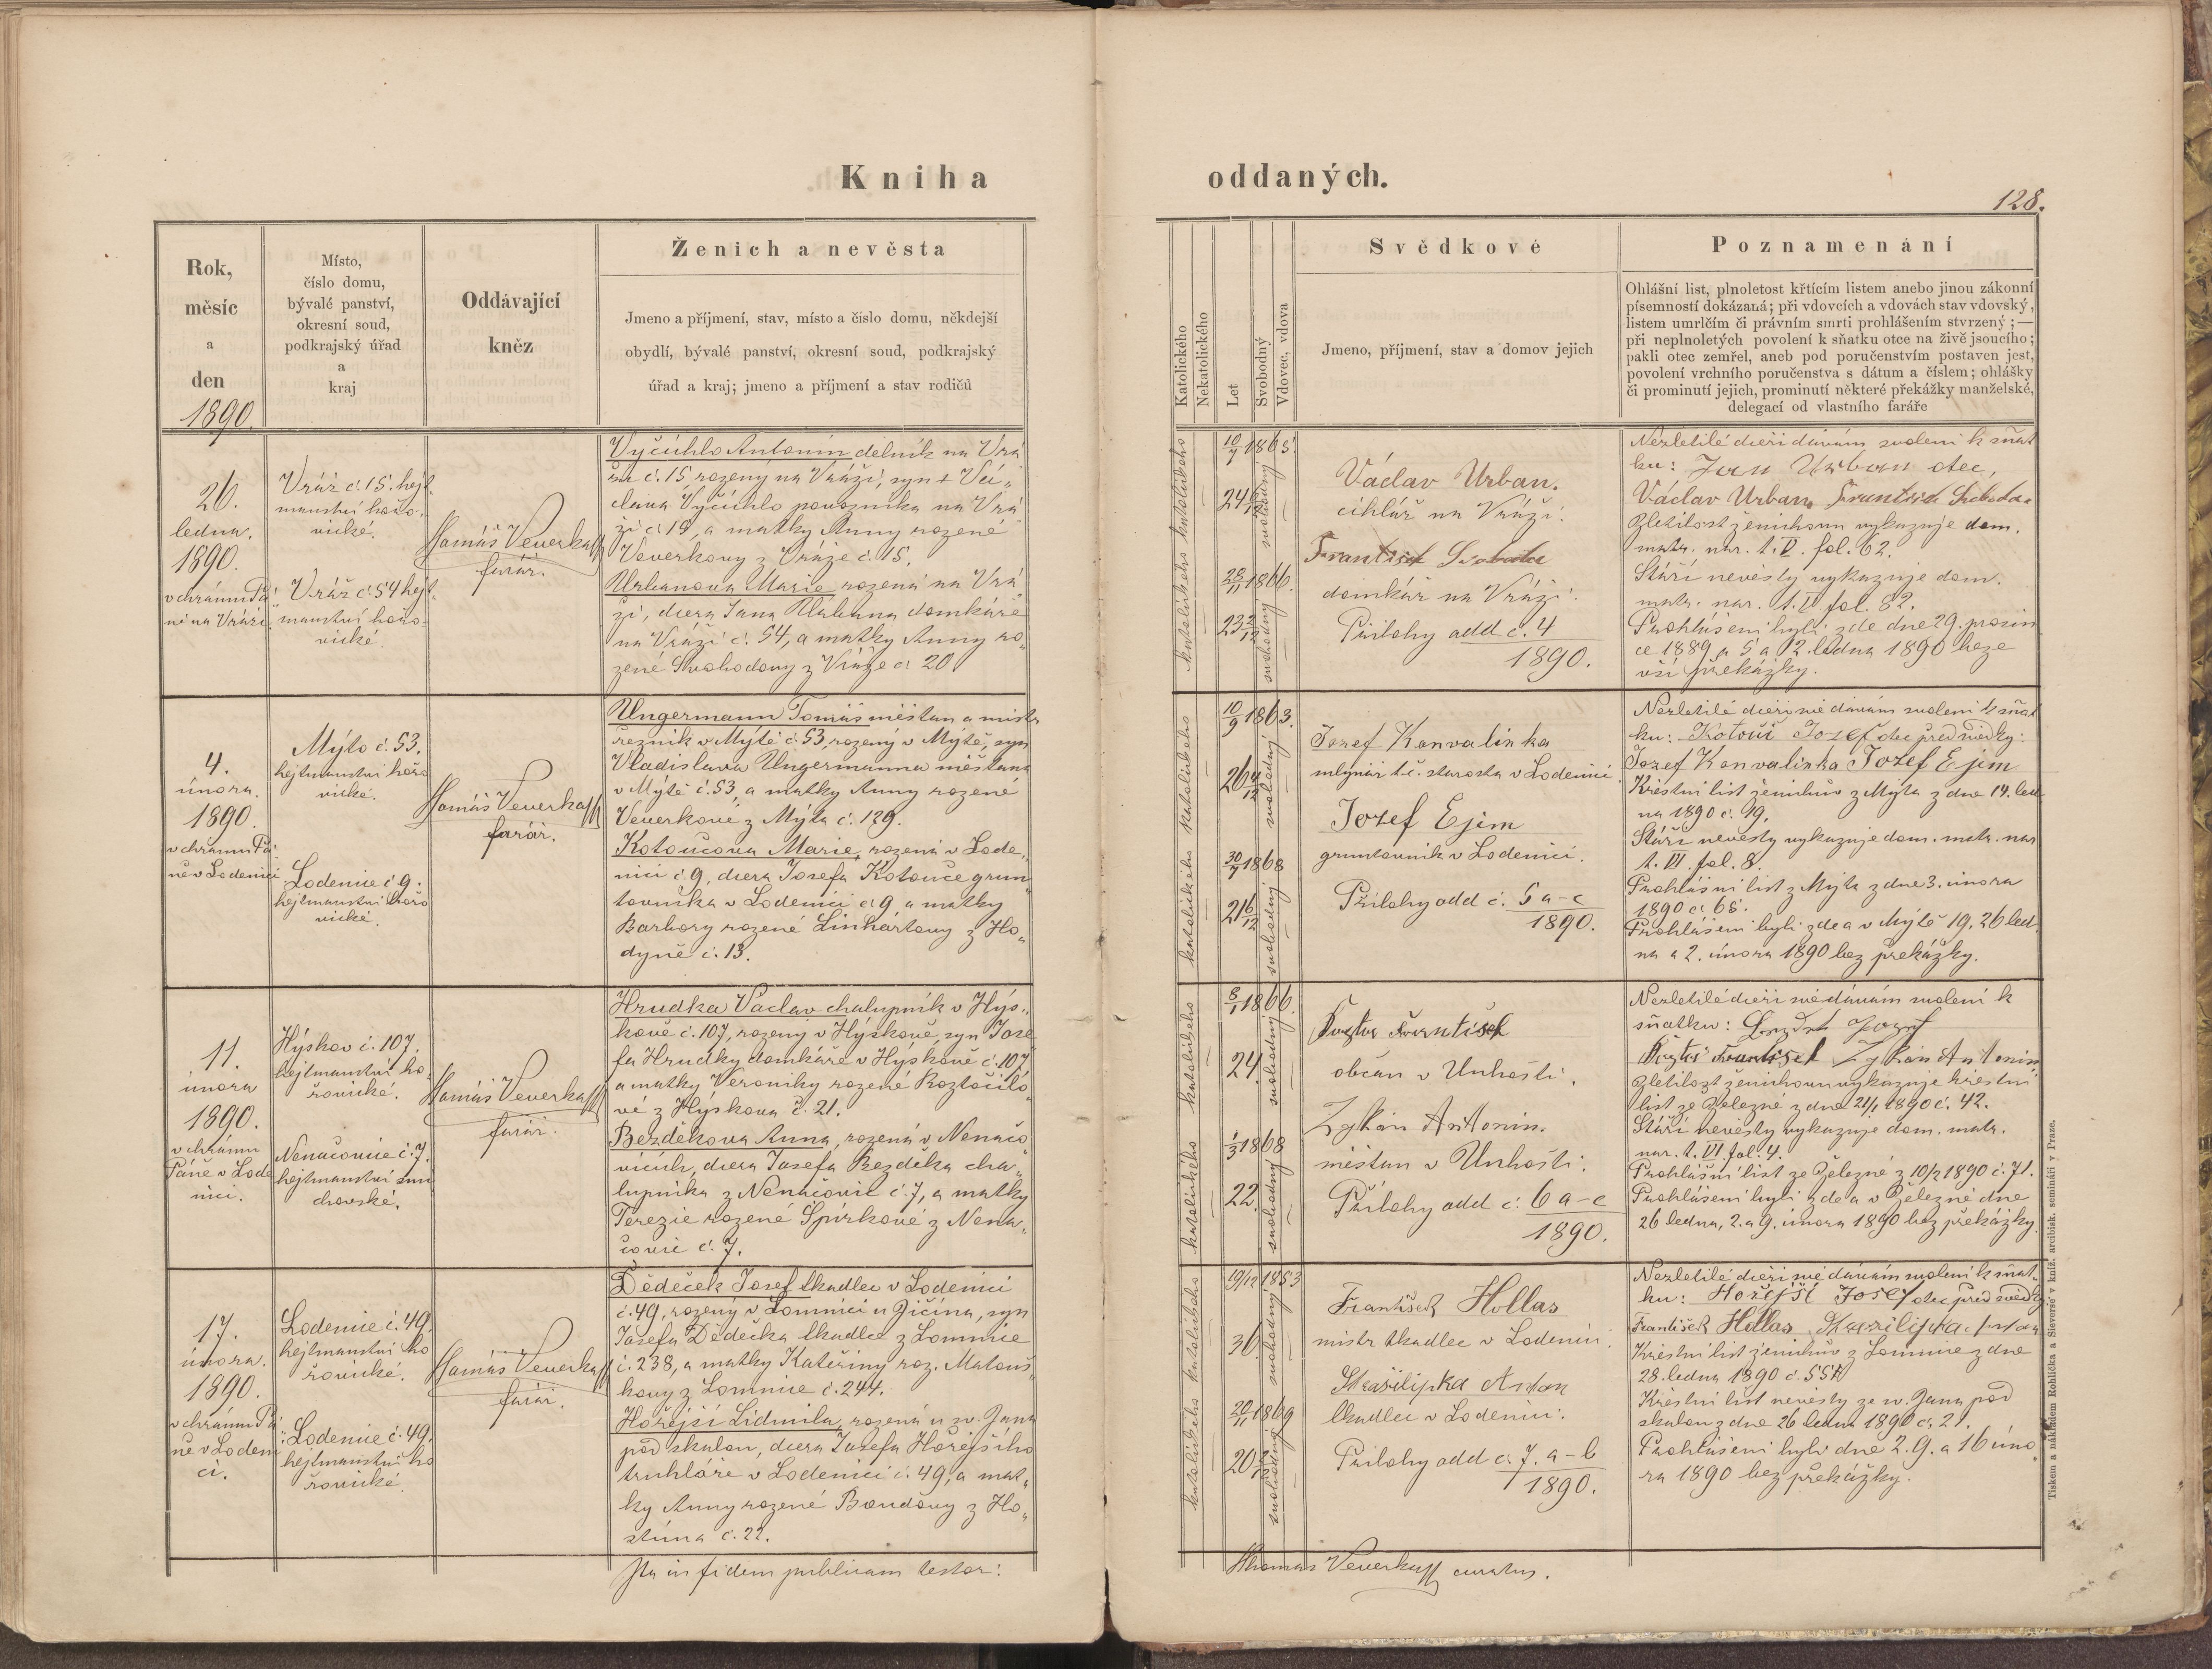 Kniha
oddaných.
128.
Rok,
měsíc
a
den
1890.
Místo,
číslo domu,
bývalé panství,
okresní soud,
podkrajský úřad
a
kraj
Oddávající
kněz
Ženich a nevěsta
Jmeno a příjmení, stav, místo a číslo domu, někdejší
obydlí, bývalé panství, okresní soud, podkrajský
úřad a kraj; jmeno a příjmení a stav rodičů
Katolického
Nekatolického
Let
Svobodný
Vdovec, vdova
Svědkové
Jmeno, příjmení, stav a domov jejich
Poznamenání
Ohlášní list, plnoletost křtícím listem anebo jinou zákonní
písemností dokázaná; při vdovcích a vdovách stav vdovský,
listem umrlčím či právním smrti prohlášením stvrzený; —
při neplnoletých povolení k sňatku otce na živě jsoucího;
pakli otec zemřel, aneb pod poručenstvím postaven jest,
povolení vrchního poručenstva s dátum a číslem; ohlášky
či prominutí jejich, prominutí některé překážky manželské,
delegací od vlastního faráře
26.
ledna.
1890.
v chrámu Pá
ně na Vráži.
Vráž č. 15. hejt
manství hořo
vické.
Vráž č. 54 hejt
manství hořo
vické.
Tomáš Veverka
farář.
Vyčichlo Antonín dělník na Vrá
ži č. 15 rozený na Vráži, syn + Vá„
clava Vyčichlo povozníka na Vrá
ži č. 15, a matky Anny rozené
Veverkovy z Vráže č. 15.
Urbanova Marie rozená na Vrá
ži, dcera Jana Urbana domkáře
na Vráži č. 54, a matky Anny ro„
zené Svobodovy z Vráže č. 20
katolického katolického
10/7 1865
24
svobodný
28/11 1866.
23 2/12
svobodný
Václav Urban.
cihlář na Vráži.
František Svoboda
domkář na Vráži.
Přílohy add č. 4
1890.
Nezletilé dceři dávám svolení k sňat
ku: Jan Urban otec,
Václav Urban, František Svoboda
Zletilost ženichovu vykazuje dom.
matr. nar. t. V. fol. 62.
Stáří nevěsty vykazuje dom.
matr. nar. t. V fol. 82.
Prohlášeni byli zde dne 29. prosin
ce 1889 a 5 a 12. ledna 1890 beze
vší překážky.
4.
února.
1890.
v chrámu Pá
ně v Lodenici
Mýto č. 53.
hejtmanství hořo
vické.
Lodenice č. 9.
hejtmanství hořo
vické.
Tomáš Veverka
farář.
Ungermann Tomáš měštan a mistr
řezník v Mýtě č. 53, rozený v Mýtě, syn
Vladislava Ungermanna měštana
v Mýtě č. 53, a matky Anny rozené
Veverkové z Mýta č. 129.
Kotoučova Marie, rozená v Lode„
nici č. 9, dcera Josefa Kotouče grun
tovníka v Lodenici č. 9 a matky
Barbory rozené Linhartovy z Ho„
dyně č. 13.
katolického katolického
10/9 1863.
26 4/12
svobodný
30/7 1868
21 6/12
svobodný
Jozef Konvalinka
mlynář t. č. starosta v Lodenici.
Jozef Ejem
gruntovník v Lodenici.
Přílohy add č. 5 a-c
1890.
Nezletilé dceři mé dávám svolení k sňat
ku: Kotouč Josef otec před svědky:
Jozef Konvalinka Jozef Ejem
Křestní list ženichův z Mýta z dne 14. led
na 1890 č. 19.
Stáří nevěsty vykazuje dom. matr. nar
t. VI. fol. 8.
Prohlášní list z Mýta z dne 3. února
1890 č. 65.
Prohlášeni byli zde a v Mýtě 19, 26 led
na a 2. února 1890 bez překážky.
11.
února
1890.
v chrámu
Páně v Lode
nici.
Hýskov č. 107.
hejtmanství ho
řovické.
Nenačovice č. 7.
hejtmanství smi
chovské.
Tomáš Veverka
farář.
Hrudka Václav chalupník v Hýs„
kově č. 107, rozený v Hýskově, syn Jose
fa Hrudky domkáře v Hýskově č. 107
a matky Veroniky rozené Roztočilo
vé z Hýskova č. 21.
Bezděkova Anna, rozená v Nenačo
vicích, dcera Josefa Bezděka cha„
lupníka z Nenačovic č. 7, a matky
Terezie rozené Špírkové z Nena„
čovic č. 7.
katolického katolického
8/1 1866.
24.
svobodný
1/3 1868
22.
svobodný
František
občan v Unhošti.
Zykán Antonín.
měštan v Unhošti.
Přílohy add č. 6 a-c
1890.
Nezletilé dceři mé dávám svolení k
sňatku:
František Zykán Antonín
Zletilost ženichovu vykazuje křestní
list ze Železné z dne 21/1 1890 č. 42.
Stáří nevěsty vykazuje dom. matr.
nar. t. VI fol. 4.
Prohlášní list ze Železné z 10/2 1890 č. 71.
Prohlášeni byli zde a v Železné dne
26 ledna, 2. a 9. února 1890 bez překážky.
17.
února.
1890.
v chrámu Pá
ně v Lodeni
ci.
Lodenice č. 49
hejtmanství ho
řovické.
Lodenice č. 49.
hejtmanství ho
řovické.
Tomáš Veverka
farář.
Dědeček Josef tkadlec v Lodenici
č. 49, rozený v Lomnici u Jičína, syn
Josefa Dědečka tkadlce z Lomnice
č. 238, a matky Kateřiny roz. Matouš
kovy z Lomnice č. 244.
Hořejší Lidmila, rozená u sv. Jana
pod skalou, dcera Josefa Hořejšího
truhláře v Lodenici č. 49, a mat„
ky Anny rozené Boudovy z Ho„
stima č. 22.
katolického katolického
19/12 1853
36.
svobodný
20/11 1869
20
svobodný
František Hollas
mistr tkadlec v Lodenici.
Skařilipka Anton
tkadlec v Lodenici.
Přílohy add č. 7. a-b
1890.
Nezletilé dceři mé dávám svolení k sňat„
ku: Hořejší Josef otec před svědky
František Hollas
Křestní list ženichův z Lomnice z dne
28. ledna 1890 č. 557
Křestní list nevěsty ze sv. Jana pod
skalou z dne 26 ledna 1890 č. 21.
Prohlášeni byli dne 2. 9. a 16 úno
ra 1890 bez překážky.
Ita in fidem publicam testor:
Thomas Veverka curatus.
Tiskem a nákladem Rohlíčka a Sieverse v kníž. arcibisk. semináři v Praze.